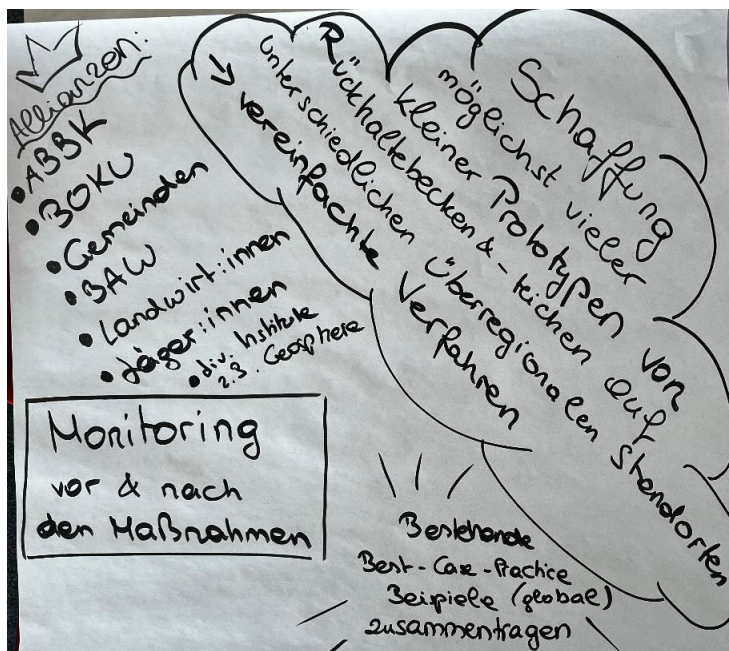 Allianzen:
• ABBK
• BOKU
• Gemeinden
• BAW
• Landwirt:innen
• Jäger:innen
• div. Institute
z.B. Geosphere
Schaffung
möglichst vieler
kleiner Prototypen von
Rückhaltebecken & -teichen auf
unterschiedlichen überregionalen Standorten
↳ vereinfachte Verfahren
Monitoring
vor & nach
den Maßnahmen
Bestehende
Best-Case-Practice
Beispiele (global)
zusammentragen